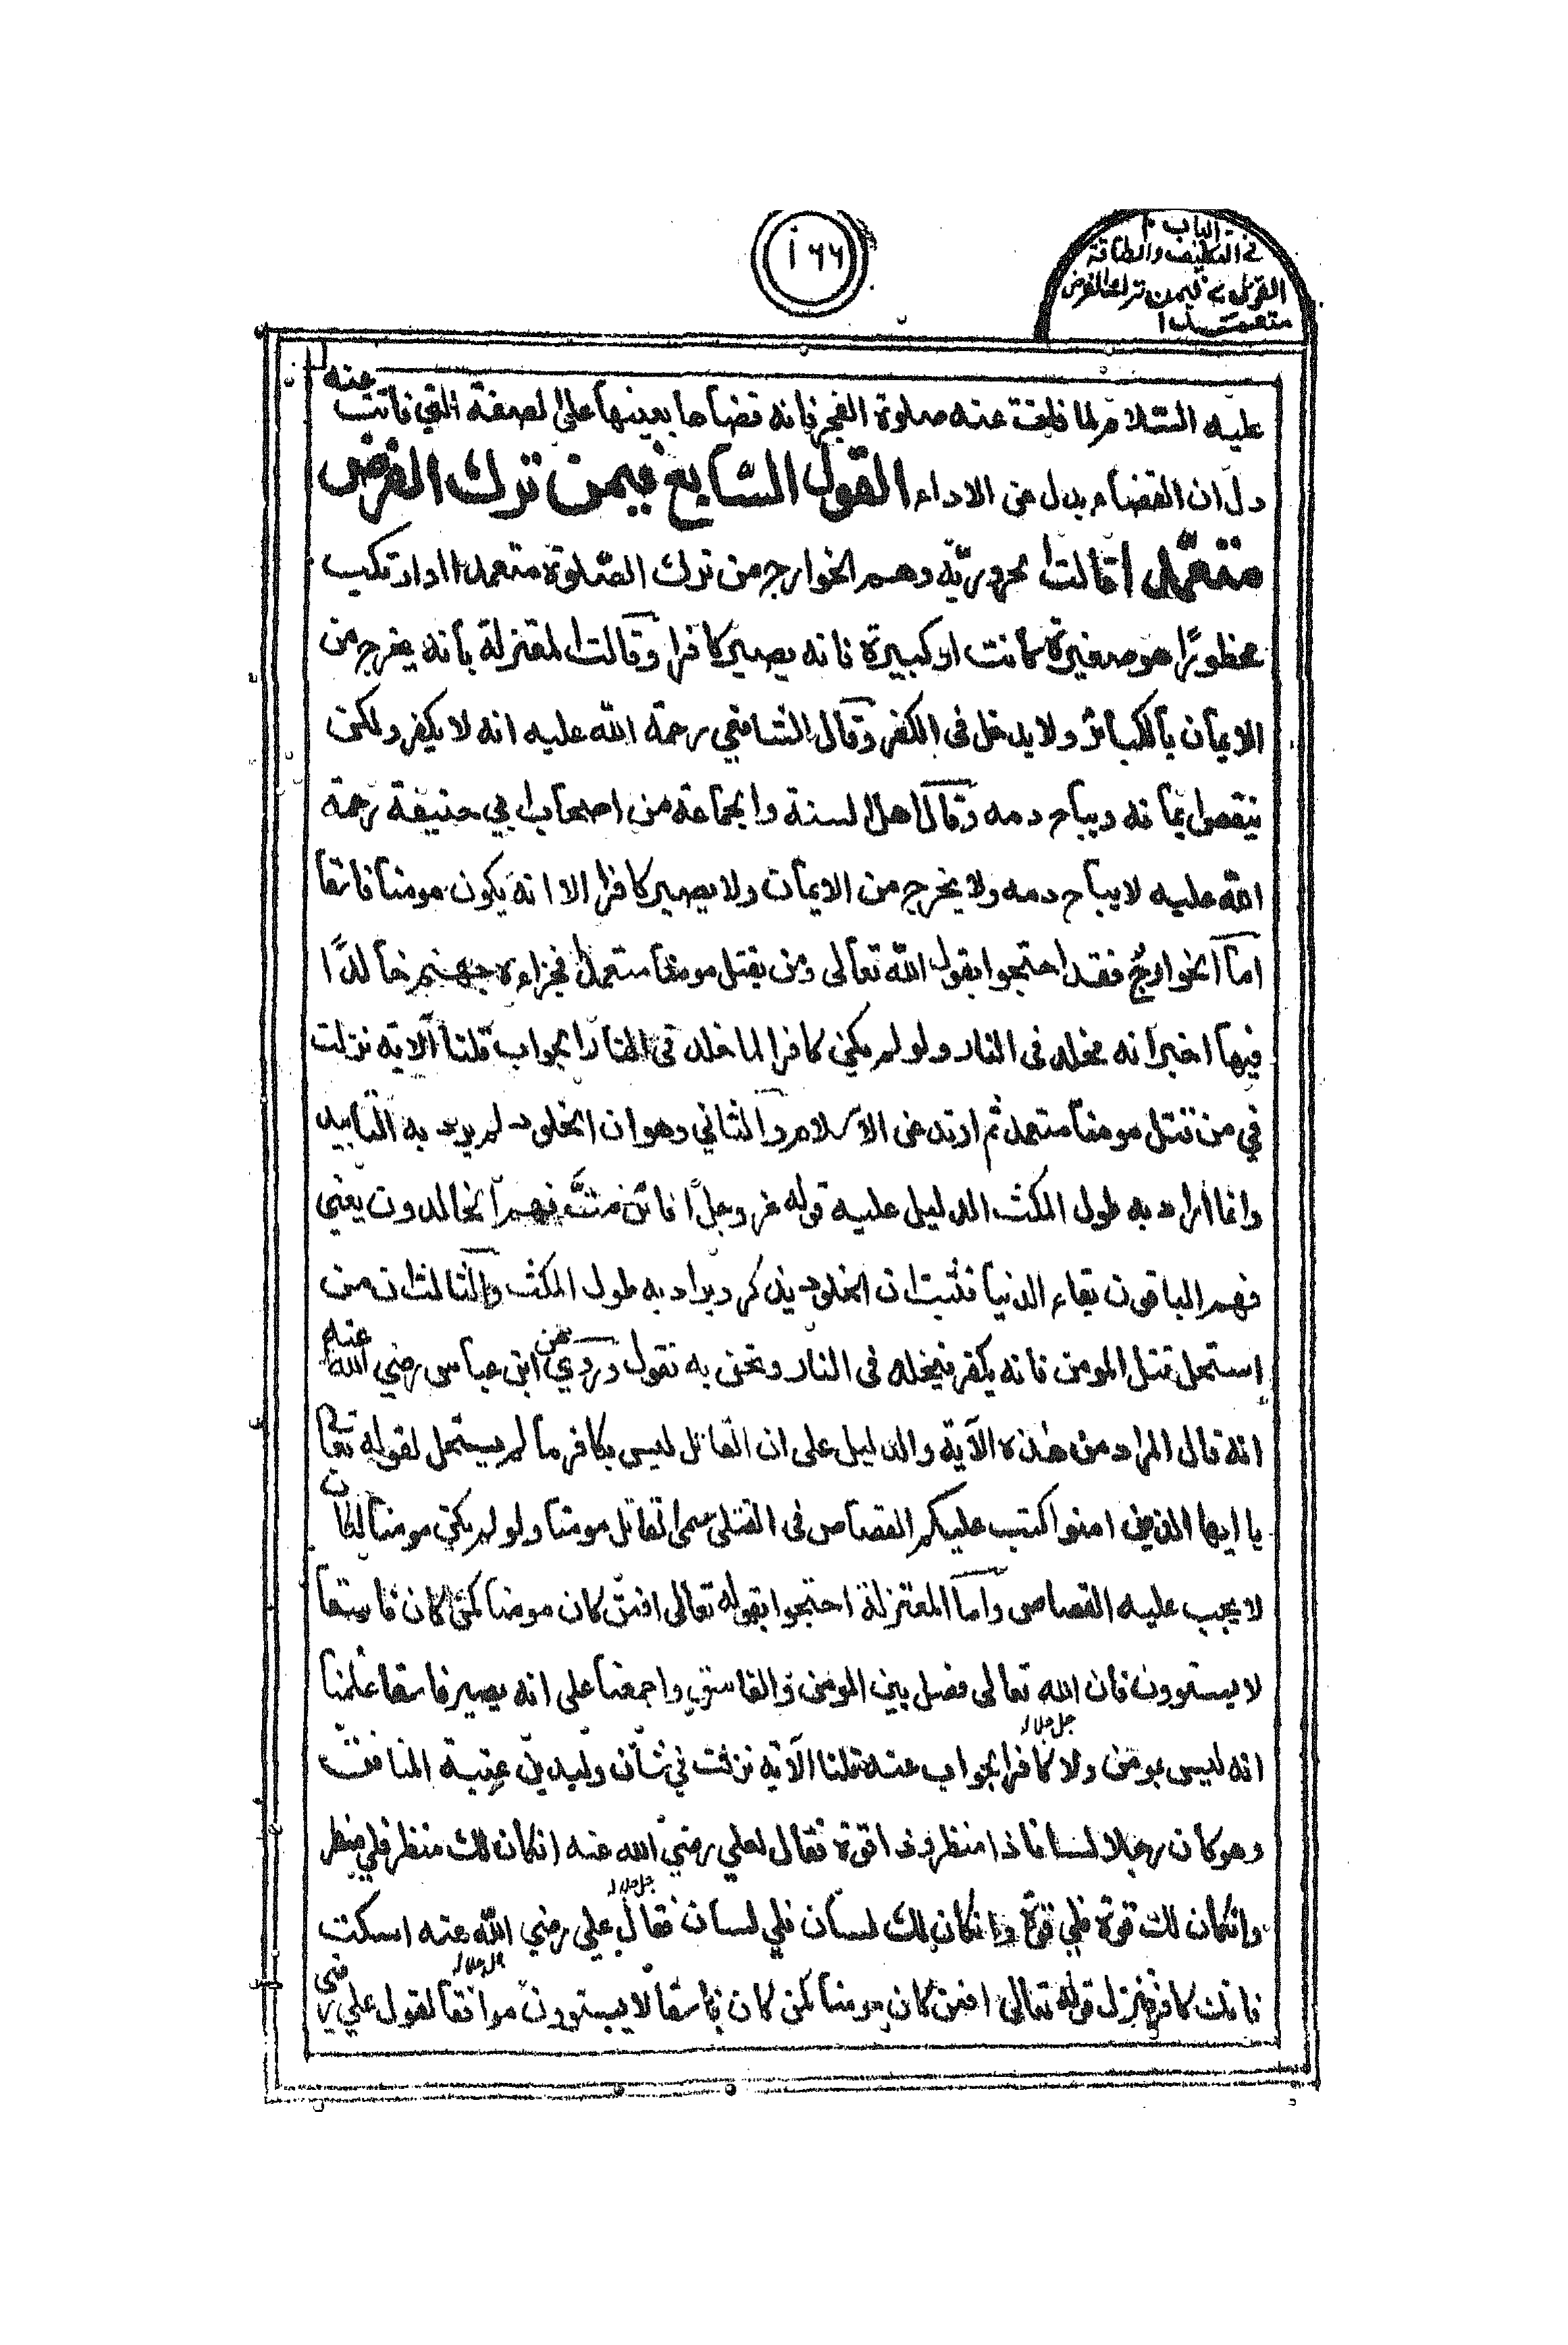 ١٦٦
الباب ١٠
في التكليف والطاقة
القول ٧ فيمن ترك الفرض
متعمدا
عليه السّلام لما فاتت عنه صلوة الفجر فانه قضاها بعينها على الصفة التي فاتت عنه
دلّ ان القضاء بدل من الاداء القول السّابع فيمن ترك الفرض
متعمّدا قالت الحروريّه وهم الخوارج من ترك الصّلوة متعمدا او ارتكب
محظورًا هو صغيرة كانت او كبيرة فانه يصير كافرا وقالت المعتزلة بأنه يخرج من
الايمان بالكبائر ولا يدخل في الكفر وقال الشافعي رحمة الله عليه انه لا يكفر ولكن
ينقص ايمانه ويباح دمه وقال اهل السنة والجماعة من اصحاب ابي حنيفة رحمة
الله عليه لا يباح دمه ولا يخرج من الايمان ولا يصير كافرا الا انه يكون مومنا فاسقا
اما الخوارج فقد احتجوا بقول الله تعالى ومن يقتل مومنا متعمدا فجزاءه جهنم خالدًا
فيها اخبر انه مخلد في النار ولو لم يكن كافرا لما خلد في النار الجواب قلنا الآية نزلت
في من قتل مومنا متعمدا ثم ارتد عن الاسلام والثاني وهو ان الخلود لم يرد به التابيد
وانما اراد به طول المكث الدليل عليه قوله عز وجلّ افائن متّ فهم الخالدون يعني
فهم الباقون بقاء الدنيا فثبت ان الخلود يذكر ويراد به طول المكث والثالث ان من
استحل قتل المومن فانه يكفر فيخلد في النار ونحن به نقول وروي عن ابن عباس رضي الله عنه
انه قال المراد من هذه الآية والدليل على ان القاتل ليس بكافر ما لم يستحل لقوله تعالى
يا ايها الذين امنوا كتب عليكم القصاص في القتلى سمى القاتل مومنا ولو لم يكن مومنا لكان
لا يجب عليه القصاص واما المعتزلة احتجوا بقوله تعالى افمن كان مومنا كمن كان فاسقا
لا يستوون فان الله تعالى فصل بين المومن والفاسق واجمعنا على انه يصير فاسقا علمنا
انه ليس بمومن ولا كافر الجواب عنه قلنا الآية نزلت في شأن وليد بن عقبة المنافق
وهو كان رجلا لسانا ذا منظر وذا قوة فقال لعلي رضي الله عنه ان كان لك منظر فلي منظر
وان كان لك قوة فلي قوة وان كان لك لسان فلي لسان فقال علي رضي الله عنه اسكت
فانك كافر فنزل قوله تعالى افمن كان مومنا كمن كان فاسقا لا يستوون موافقا لقول علي رضي